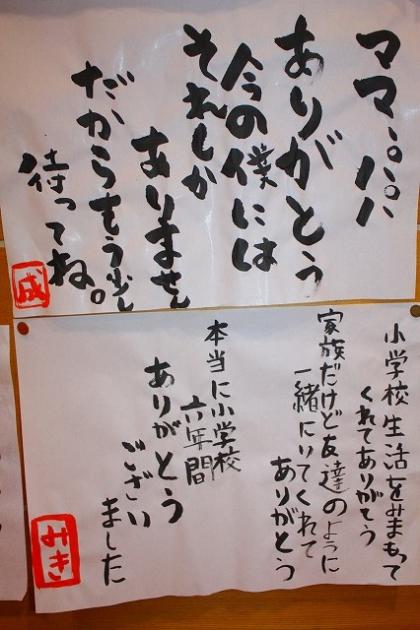 ママ・パパ
ありがとう
今の僕には
それしか
ありません
だからもう少し
待ってね。
成
小学校生活をみまもって
くれてありがとう
家族だけど友達のように
一緒にいてくれて
ありがとう
本当に小学校
六年間
ありがとう
ござい
ました
みき